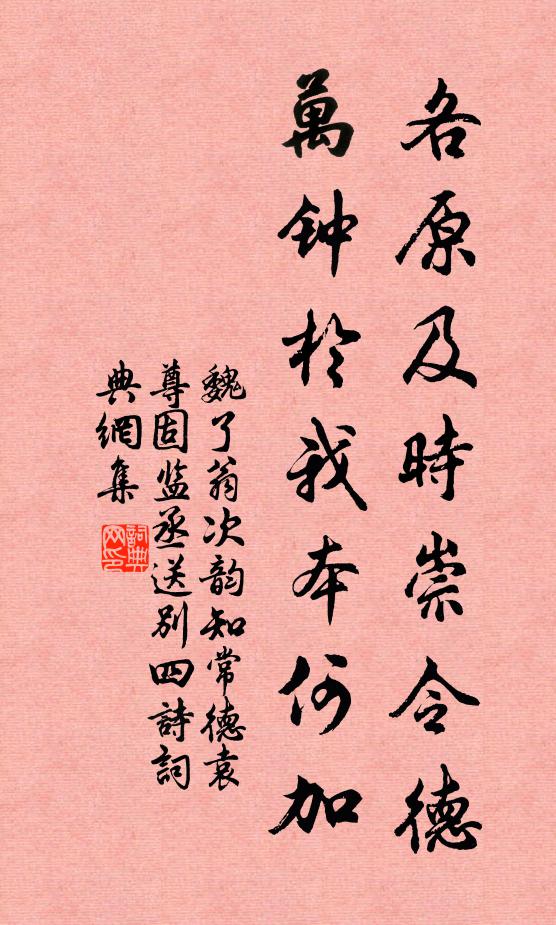 各原及時崇令德
萬钟於我本何加
魏了翁次韵知常德袁
尊固监丞送别四詩詞
典網集
詞典
网印